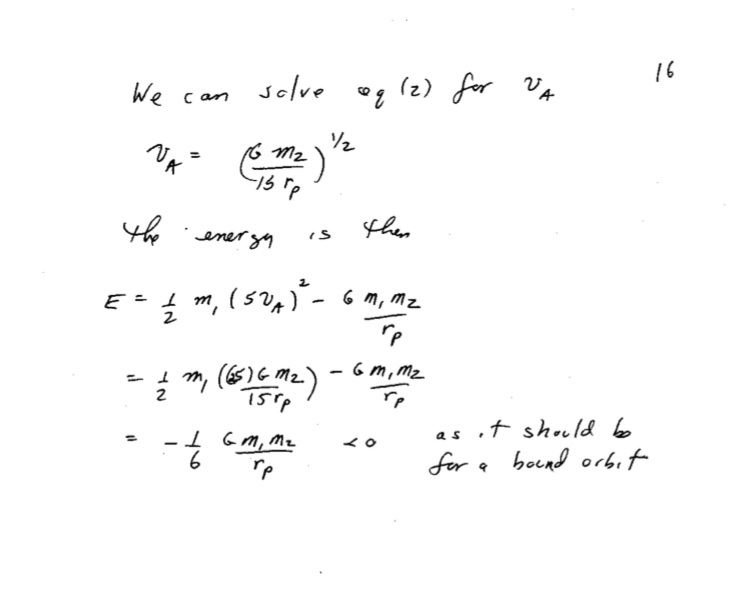 16
We can solve eq (2) for v_A
v_A = (G m_2 / 15 r_p)^1/2
the energy is then
E = 1/2 m_1 (5 v_A)^2 - G m_1 m_2 / r_p
= 1/2 m_1 ((25) G m_2 / 15 r_p) - G m_1 m_2 / r_p
= - 1/6 G m_1 m_2 / r_p < 0 as it should be
for a bound orbit